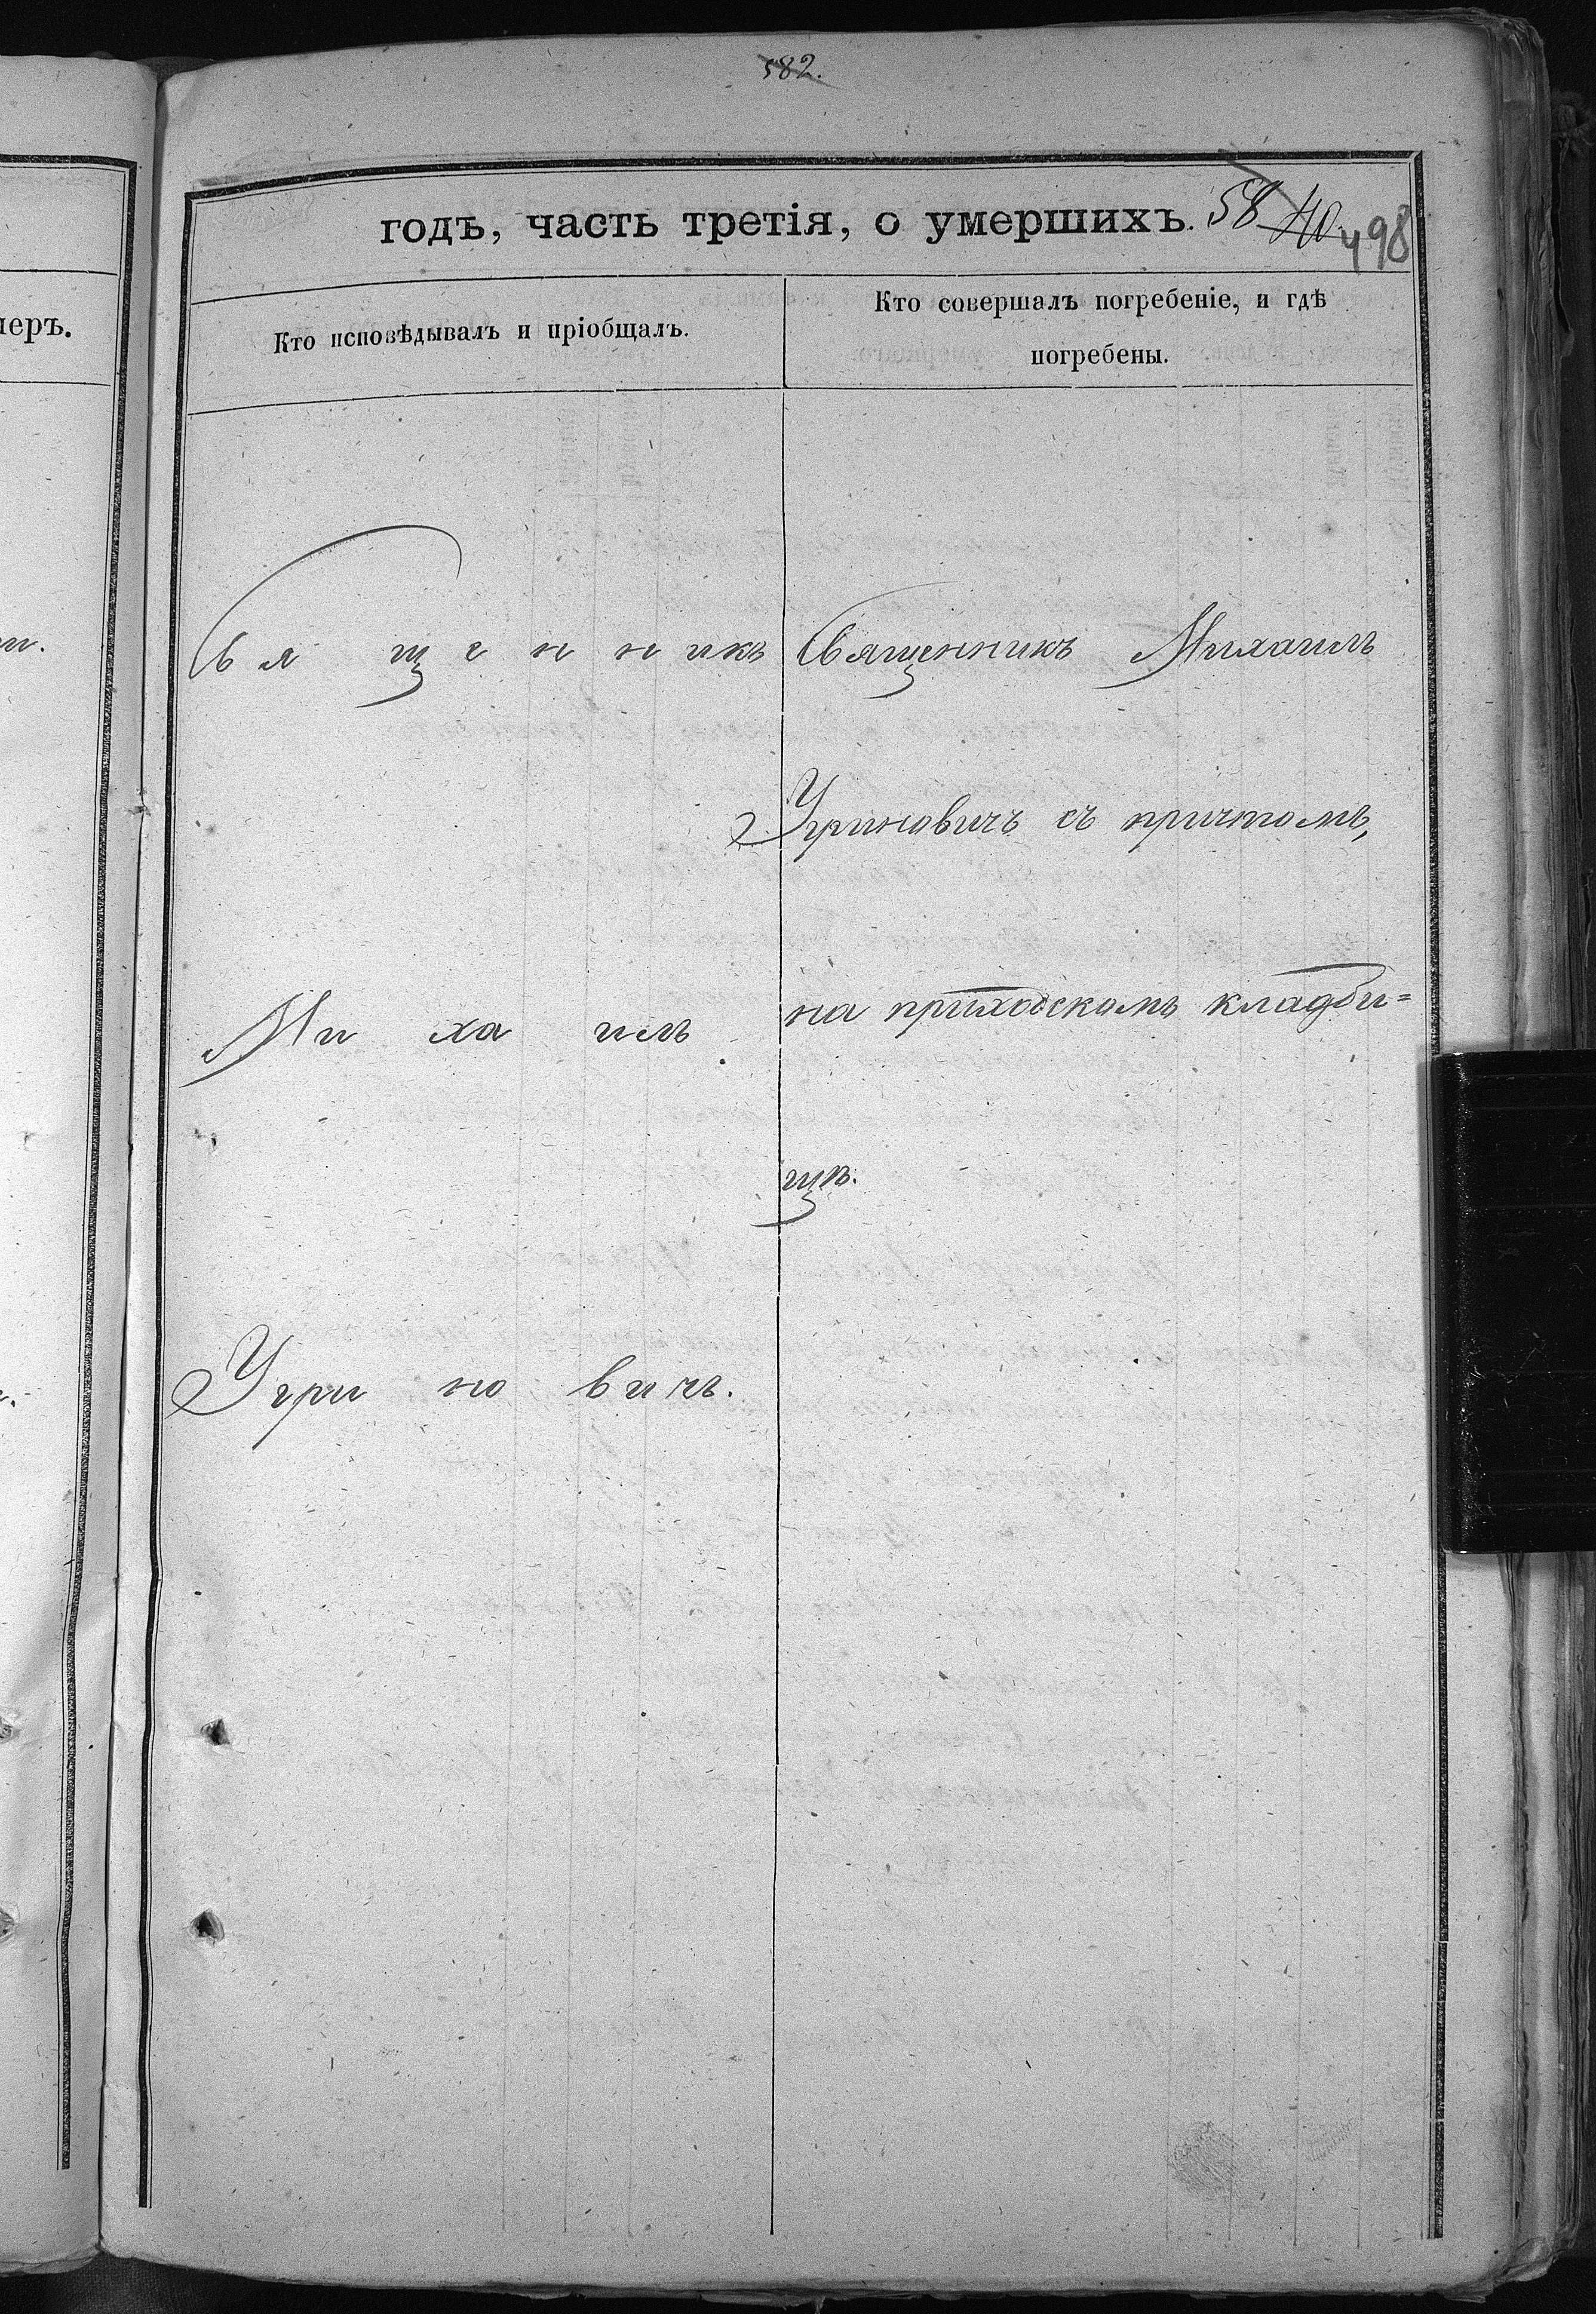 582.
годъ, часть третія, о умершихъ. 58 40. 498
меръ.
Кто исповѣдывалъ и пріобщалъ.
Кто совершалъ погребеніе, и гдѣ
погребены.
Свя ще н н икъ
Ми ха илъ
Угри но вичъ.
Священникъ Михаилъ
Угриновичъ съ причтомъ,
на приходскомъ кладби=
щѣ.